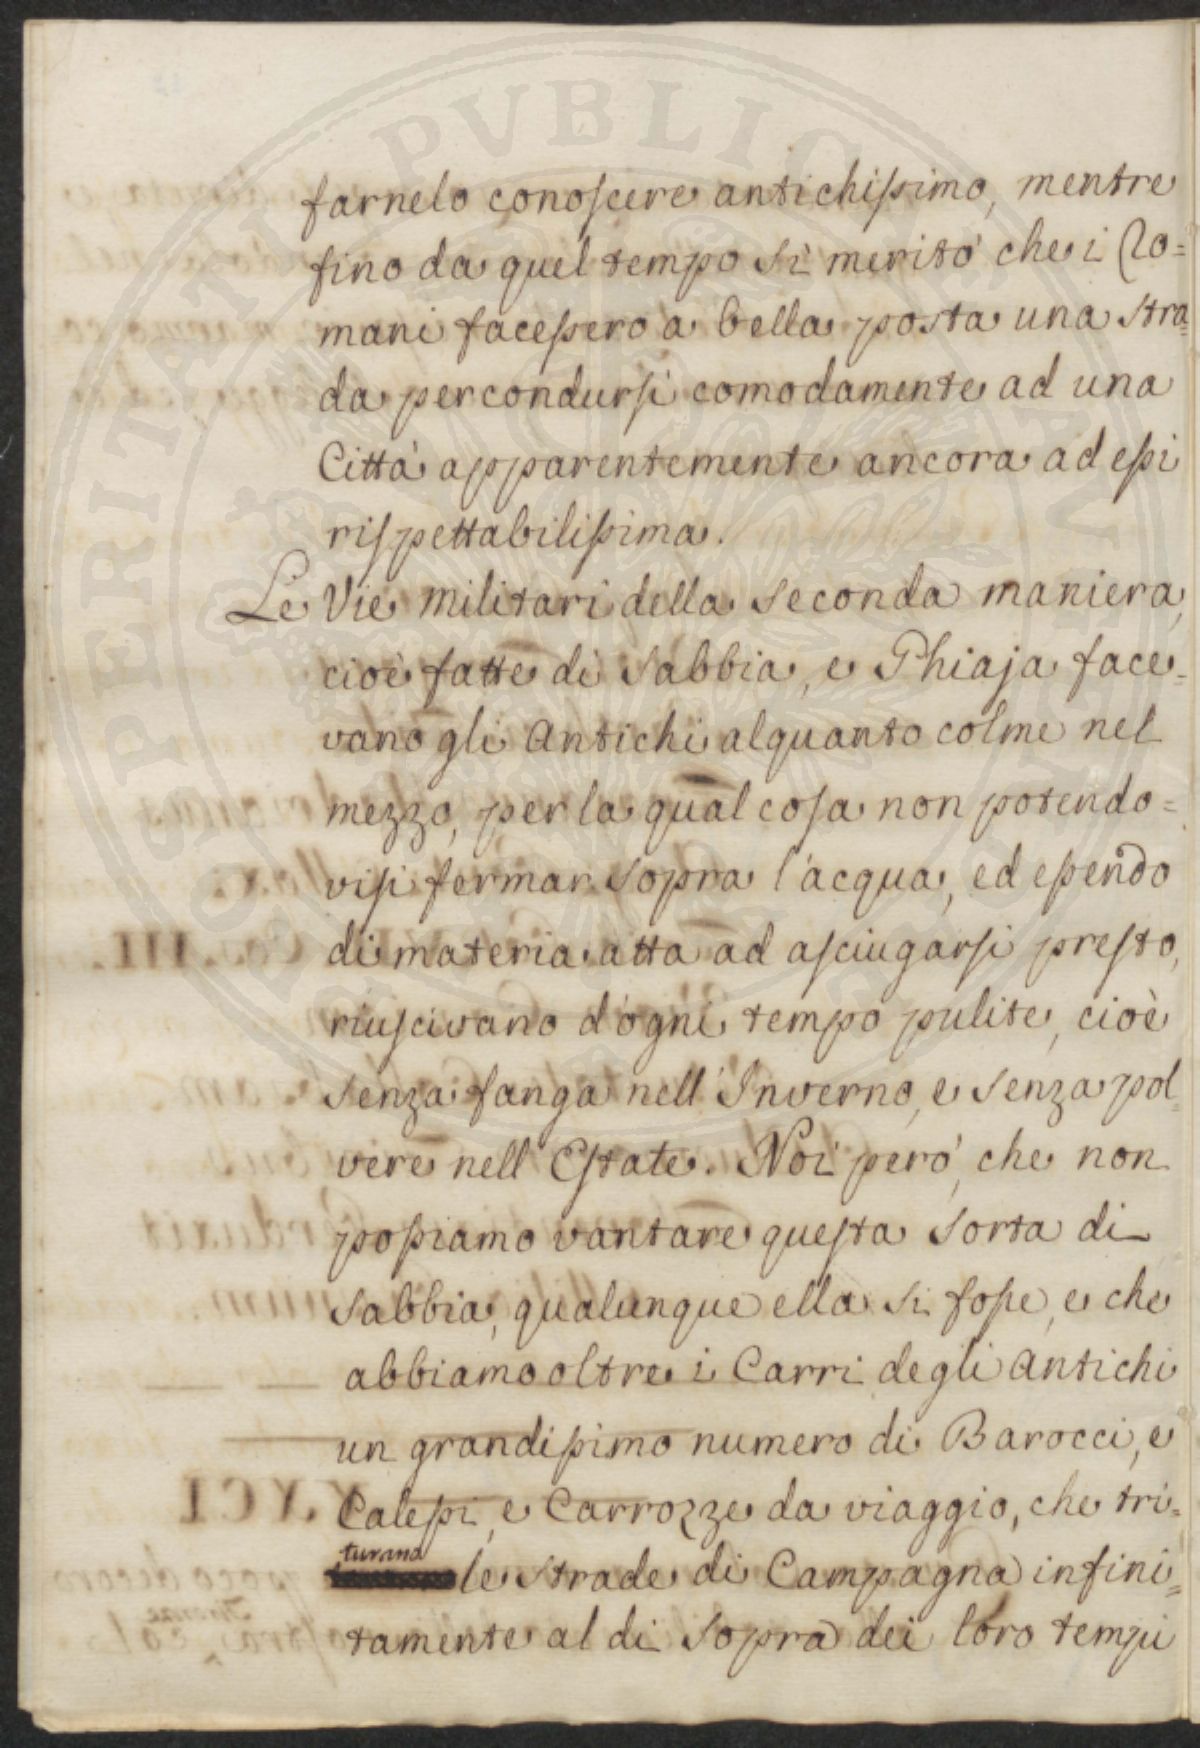 farnelo conoscere antichissimo, mentre
fino da quel tempo si meritò che i Ro=
mani facessero a bella posta una stra=
da per condursi comodamente ad una
Città apparentemente ancora ad essi
rispettabilissima.
Le Vie militari della seconda maniera,
cioè fatte di sabbia, e Ghiaja face=
vano gli Antichi alquanto colme nel
mezzo, per la qual cosa non potendo=
visi fermar sopra l'acqua, ed essendo
di materia atta ad asciugarsi presto,
riuscivano d'ogni tempo pulite, cioè
senza fanga nell'Inverno, e senza pol=
vere nell'Estate. Noi però, che non
possiamo vantare questa sorta di
sabbia, qualunque ella si fosse, e che
abbiamo oltre i Carri degli Antichi
un grandissimo numero di Barocci, e
Calessi, e Carrozze da viaggio, che tri=
turano
le strade di Campagna infini=
tamente al di sopra dei loro tempi